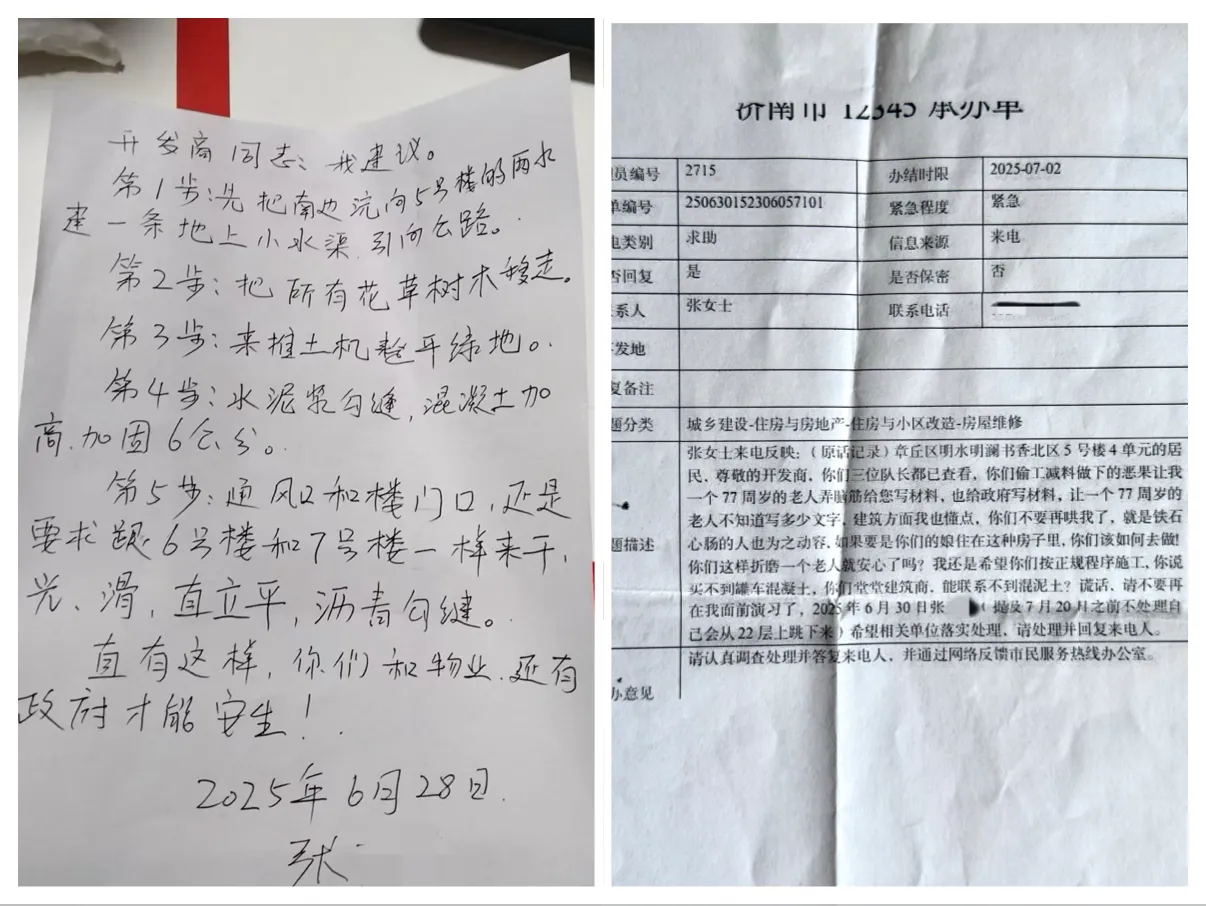 开发商同志：我建议。
第1步：先把南边流向5号楼的雨水
建一条地上小水渠引向公路。
第2步：把所有花草树木移走。
第3步：来推土机整平绿地。
第4步：水泥浆勾缝，混凝土加
高、加固6公分。
第5步：通风口和楼门口，还是
要求跟6号楼和7号楼一样来干，
光、滑，直立平，沥青勾缝。
直有这样，你们和物业、还有
政府才能安生！
2025年6月28日.
张
济南市 12345 承办单
员编号 2715 办结时限 2025-07-02
单编号 250630152306057101 紧急程度 紧急
电类别 求助 信息来源 来电
否回复 是 是否保密 否
系人 张女士 联系电话
发地
复备注
题分类 城乡建设-住房与房地产-住房与小区改造-房屋维修
张女士来电反映：（原话记录）章丘区明水明澜书香北区5号楼4单元的居
民，尊敬的开发商，你们三位队长都已查看，你们偷工减料做下的恶果让我
一个77周岁的老人弄脑筋给您写材料，也给政府写材料，让一个77周岁的
老人不知道写多少文字，建筑方面我也懂点，你们不要再哄我了，就是铁石
题描述 心肠的人也为之动容，如果要是你们的娘住在这种房子里，你们该如何去做!
你们这样折磨一个老人就安心了吗？我还是希望你们按正规程序施工，你说
买不到罐车混凝土，你们堂堂建筑商，能联系不到混泥土？谎话，请不要再
在我面前演习了，2025年6月30日张（提及7月20月之前不处理自
己会从22层上跳下来）希望相关单位落实处理，请处理并回复来电人。
请认真调查处理并答复来电人，并通过网络反馈市民服务热线办公室。
办意见